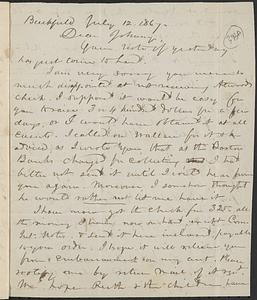 Berkfield July 12, 1867.
Dear Johnny,
Your note of yesterday
has just come to hand.
I am very sorry you were so
much disappointed at not receiving Atwoods
check. I supposed it would be easy for
you to raise hundred dollars for a few
days, or I would have obtained it at all
events. I called on Wallace for it &
advised, as I wrote you that as the Boston
Banks charged for collecting I had
better not send it until I could hear from
you again. Moreover I somehow thought
he would rather not let me have it.
I have now got the check for 325 all
the money I have now on hand except
Notes, & send it here inclosed payable
to your order. I hope it will relieve you
from embarrassment on my acct. Please
one by return mail if it is
We hope Ruth & the children have